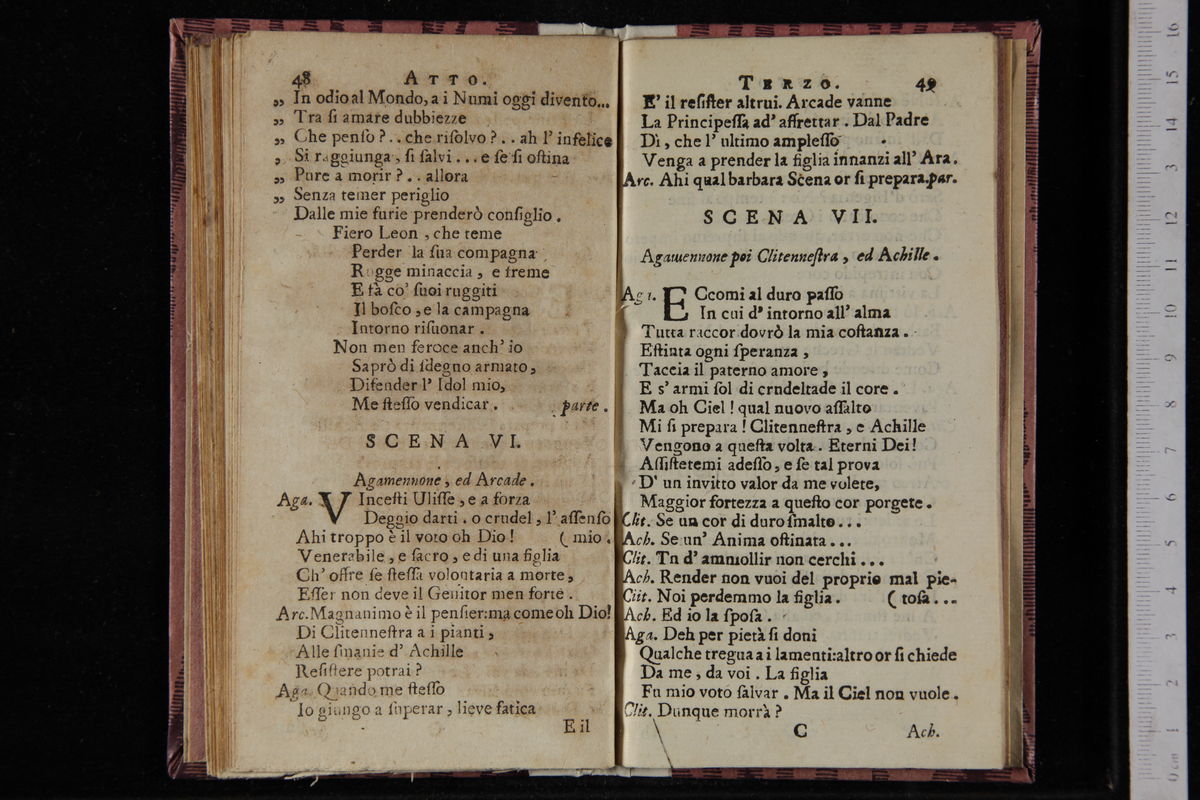 48 ATTO.
„ In odio al Mondo, a i Numi oggi divento...
„ Tra ſi amare dubbiezze
„ Che penſo ? . . che riſolvo ? . . ah l' infelice
„ Si raggiunga , ſi ſalvi . . . e ſe ſi oſtina
„ Pure a morir ? . . allora
„ Senza temer periglio
Dalle mie furie prenderò conſiglio .
Fiero Leon , che teme
Perder la ſua compagna
Rugge minaccia , e freme
E fà co' ſuoi ruggiti
Il boſco , e la campagna
Intorno riſuonar .
Non men feroce anch' io
Saprò di ſdegno armato ,
Difender l' Idol mio,
Me ſteſſo vendicar . parte .
SCENA VI.
Agamennone , ed Arcade .
Aga. VInceſti Uliſſe , e a forza
Deggio darti . o crudel , l' aſſenſo
Ahi troppo è il voto oh Dio ! ( mio .
Venerabile , e ſacro , e di una figlia
Ch' offre ſe ſteſſa volontaria a morte ,
Eſſer non deve il Genitor men forte .
Arc. Magnanimo è il penſier: ma come oh Dio!
Di Clitenneſtra a i pianti ,
Alle ſmanie d' Achille
Reſiſtere potrai ?
Aga. Quando me ſteſſo
Io giungo a ſuperar , lieve fatica
E il
TERZO. 49
E' il reſiſter altrui. Arcade vanne
La Principeſſa ad' affrettar . Dal Padre
Di , che l' ultimo ampleſſo
Venga a prender la figlia innanzi all' Ara .
Arc. Ahi qual barbara Scena or ſi prepara. par.
SCENA VII.
Agamennone poi Clitenneſtra , ed Achille .
Aga. ECcomi al duro paſſo
In cui d' intorno all' alma
Tutta raccor dovrò la mia coſtanza .
Eſtinta ogni ſperanza ,
Taccia il paterno amore ,
E s' armi ſol di crndeltade il core .
Ma oh Ciel ! qual nuovo aſſalto
Mi ſi prepara ! Clitenneſtra , e Achille
Vengono a queſta volta . Eterni Dei !
Aſſiſtetemi adeſſo , e ſe tal prova
D' un invitto valor da me volete,
Maggior fortezza a queſto cor porgete .
Clit. Se un cor di duro ſmalto . . .
Ach. Se un' Anima oſtinata . . .
Clit. Tn d' ammollir non cerchi . . .
Ach. Render non vuoi del proprio mal pie-
Clit. Noi perdemmo la figlia . ( toſa . . .
Ach. Ed io la ſpoſa .
Aga. Deh per pietà ſi doni
Qualche tregua a i lamenti: altro or ſi chiede
Da me , da voi . La figlia
Fu mio voto ſalvar . Ma il Ciel non vuole .
Clit. Dunque morrà ?
C Ach.
0 cm 1 2 3 4 5 6 7 8 9 10 11 12 13 14 15 16